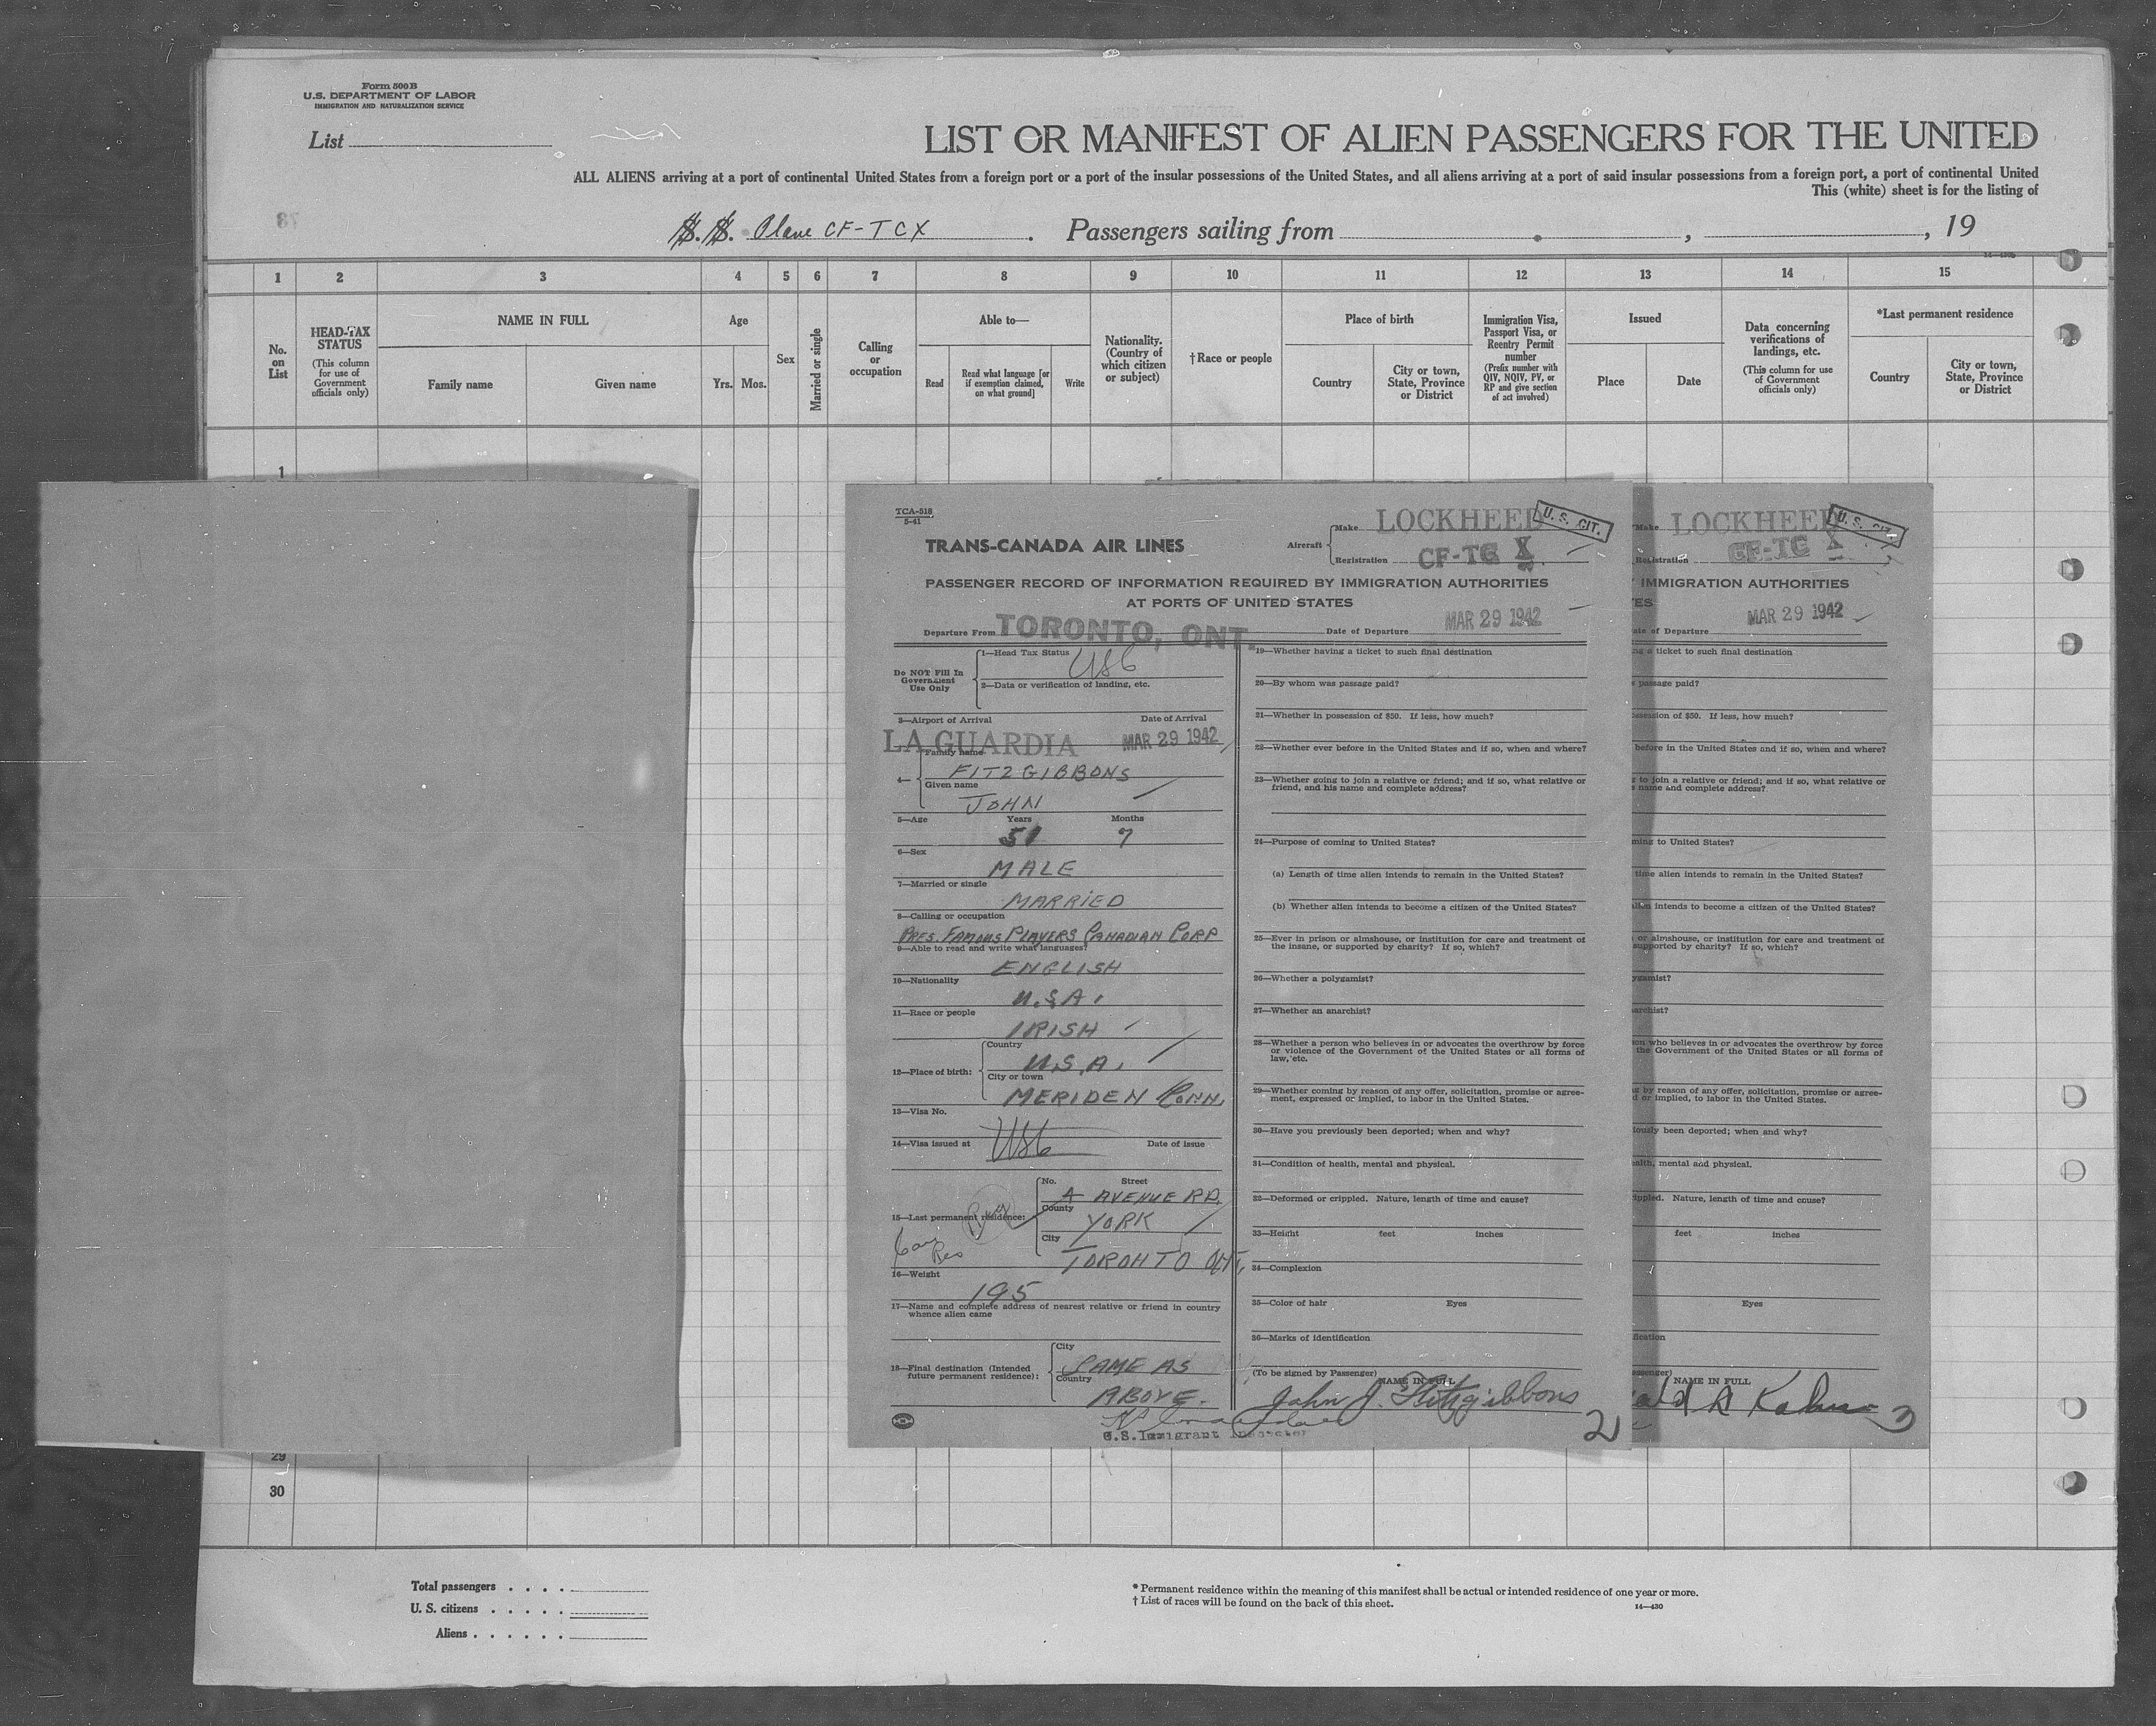 Form 500B
U.S. DEPARTMENT OF LABOR
IMMIGRATION AND NATURALIZATION SERVICE
List
LIST OR MANIFEST OF ALIEN PASSENGERS FOR THE UNITED
ALL ALIENS arriving at a port of continental United States from a foreign port or a port of the insular possessions of the United States, and all aliens arriving at a port of said insular possessions from a foreign port, a port of continental United
This (white) sheet is for the listing of
S.S. Plane CF-TCX . Passengers sailing from , , 19
1 2 3 4 5 6 7 8 9 10 11 12 13 14 15
No. on List
HEAD-TAX STATUS
(This column for use of Government officials only)
NAME IN FULL
Family name Given name
Age
Yrs. Mos.
Sex
Married or single
Calling or occupation
Able to—
Read
Read what language [or if exemption claimed, on what ground]
Write
Nationality. (Country of which citizen or subject)
†Race or people
Place of birth
Country
City or town, State, Province or District
Immigration Visa, Passport Visa, or Reentry Permit number
(Prefix number with QIV, NQIV, PV, or RP and give section of act involved)
Issued
Place Date
Data concerning verifications of landings, etc.
(This column for use of Government officials only)
*Last permanent residence
Country
City or town, State, Province or District
1
TCA-518
5-41
TRANS-CANADA AIR LINES
Aircraft
Make LOCKHEED
U. S. CIT.
Registration CF-TC X
PASSENGER RECORD OF INFORMATION REQUIRED BY IMMIGRATION AUTHORITIES
AT PORTS OF UNITED STATES
Departure From TORONTO, ONT. Date of Departure MAR 29 1942
Do NOT Fill In Government Use Only
1—Head Tax Status USC
2—Data or verification of landing, etc.
3—Airport of Arrival Date of Arrival
LA GUARDIA MAR 29 1942
4— Family name
FITZGIBBONS
Given name
JOHN
5—Age Years Months
51 7
6—Sex
MALE
7—Married or single
MARRIED
8—Calling or occupation
PRES. FAMOUS PLAYERS CANADIAN CORP
9—Able to read and write what languages?
ENGLISH
10—Nationality
U.S.A.
11—Race or people
IRISH
12—Place of birth:
Country
U.S.A.
City or town
MERIDEN CONN.
13—Visa No.
14—Visa issued at USC Date of issue
15—Last permanent residence:
No. Street
4 AVENUE RD.
County
YORK
City
TORONTO ONT.
Can Res
16—Weight
195
17—Name and complete address of nearest relative or friend in country
whence alien came
18—Final destination (Intended
future permanent residence):
City
SAME AS
Country
ABOVE.
U.S. Immigrant Inspector
19—Whether having a ticket to such final destination
20—By whom was passage paid?
21—Whether in possession of $50. If less, how much?
22—Whether ever before in the United States and if so, when and where?
23—Whether going to join a relative or friend; and if so, what relative or
friend, and his name and complete address?
24—Purpose of coming to United States?
(a) Length of time alien intends to remain in the United States?
(b) Whether alien intends to become a citizen of the United States?
25—Ever in prison or almshouse, or institution for care and treatment of
the insane, or supported by charity? If so, which?
26—Whether a polygamist?
27—Whether an anarchist?
28—Whether a person who believes in or advocates the overthrow by force
or violence of the Government of the United States or all forms of
law, etc.
29—Whether coming by reason of any offer, solicitation, promise or agree-
ment, expressed or implied, to labor in the United States.
30—Have you previously been deported; when and why?
31—Condition of health, mental and physical.
32—Deformed or crippled. Nature, length of time and cause?
33—Height feet inches
34—Complexion
35—Color of hair Eyes
36—Marks of identification
(To be signed by Passenger)
NAME IN FULL
John J. Fitzgibbons
2
Make LOCKHEED
U. S. CIT.
Registration CF-TC X
IMMIGRATION AUTHORITIES
TES
ate of Departure MAR 29 1942
ng a ticket to such final destination
s passage paid?
ssession of $50. If less, how much?
before in the United States and if so, when and where?
to join a relative or friend; and if so, what relative or
s name and complete address?
ming to United States?
time alien intends to remain in the United States?
alien intends to become a citizen of the United States?
or almshouse, or institution for care and treatment of
supported by charity? If so, which?
ygamist?
archist?
son who believes in or advocates the overthrow by force
the Government of the United States or all forms of
ng by reason of any offer, solicitation, promise or agree-
d or implied, to labor in the United States.
iously been deported; when and why?
ealth, mental and physical.
rippled. Nature, length of time and cause?
feet inches
Eyes
ification
assenger)
NAME IN FULL
3
29
30
Total passengers . . . .
U. S. citizens . . . . .
Aliens . . . . . .
* Permanent residence within the meaning of this manifest shall be actual or intended residence of one year or more.
† List of races will be found on the back of this sheet.
14—430